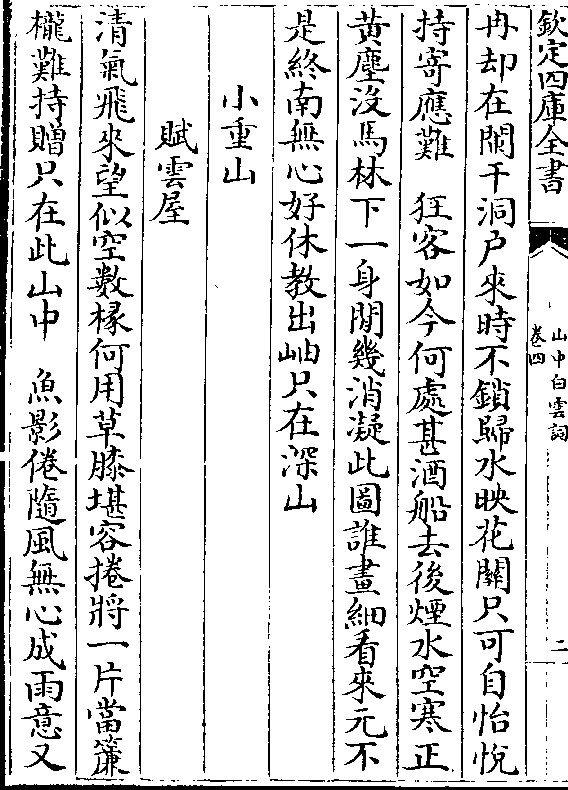 欽定四庫全書
山中白雲詞
卷四
二
冉却在闌干洞户來時不鎖歸水映花關只可自怡悦
持寄應難　狂客如今何處甚酒船去後煙水空寒正
黄塵沒馬林下一身閒幾消凝此圖誰畫細看來元不
是終南無心好休教出岫只在深山
小重山
賦雲屋
清氣飛來望似空數椽何用草膝堪容捲將一片當簾
櫳難持贈只在此山中　魚影倦隨風無心成雨意又